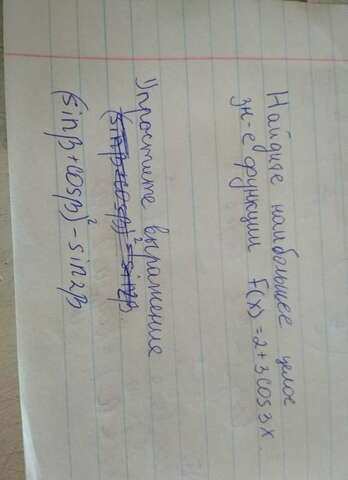 Найдите наибольшее целое
зн-е функции f(x)=2+3cos3x.
1) простите выражения
(sinβ+cosβ)² - sin2β
(sinβ+cosβ)² - sin2β